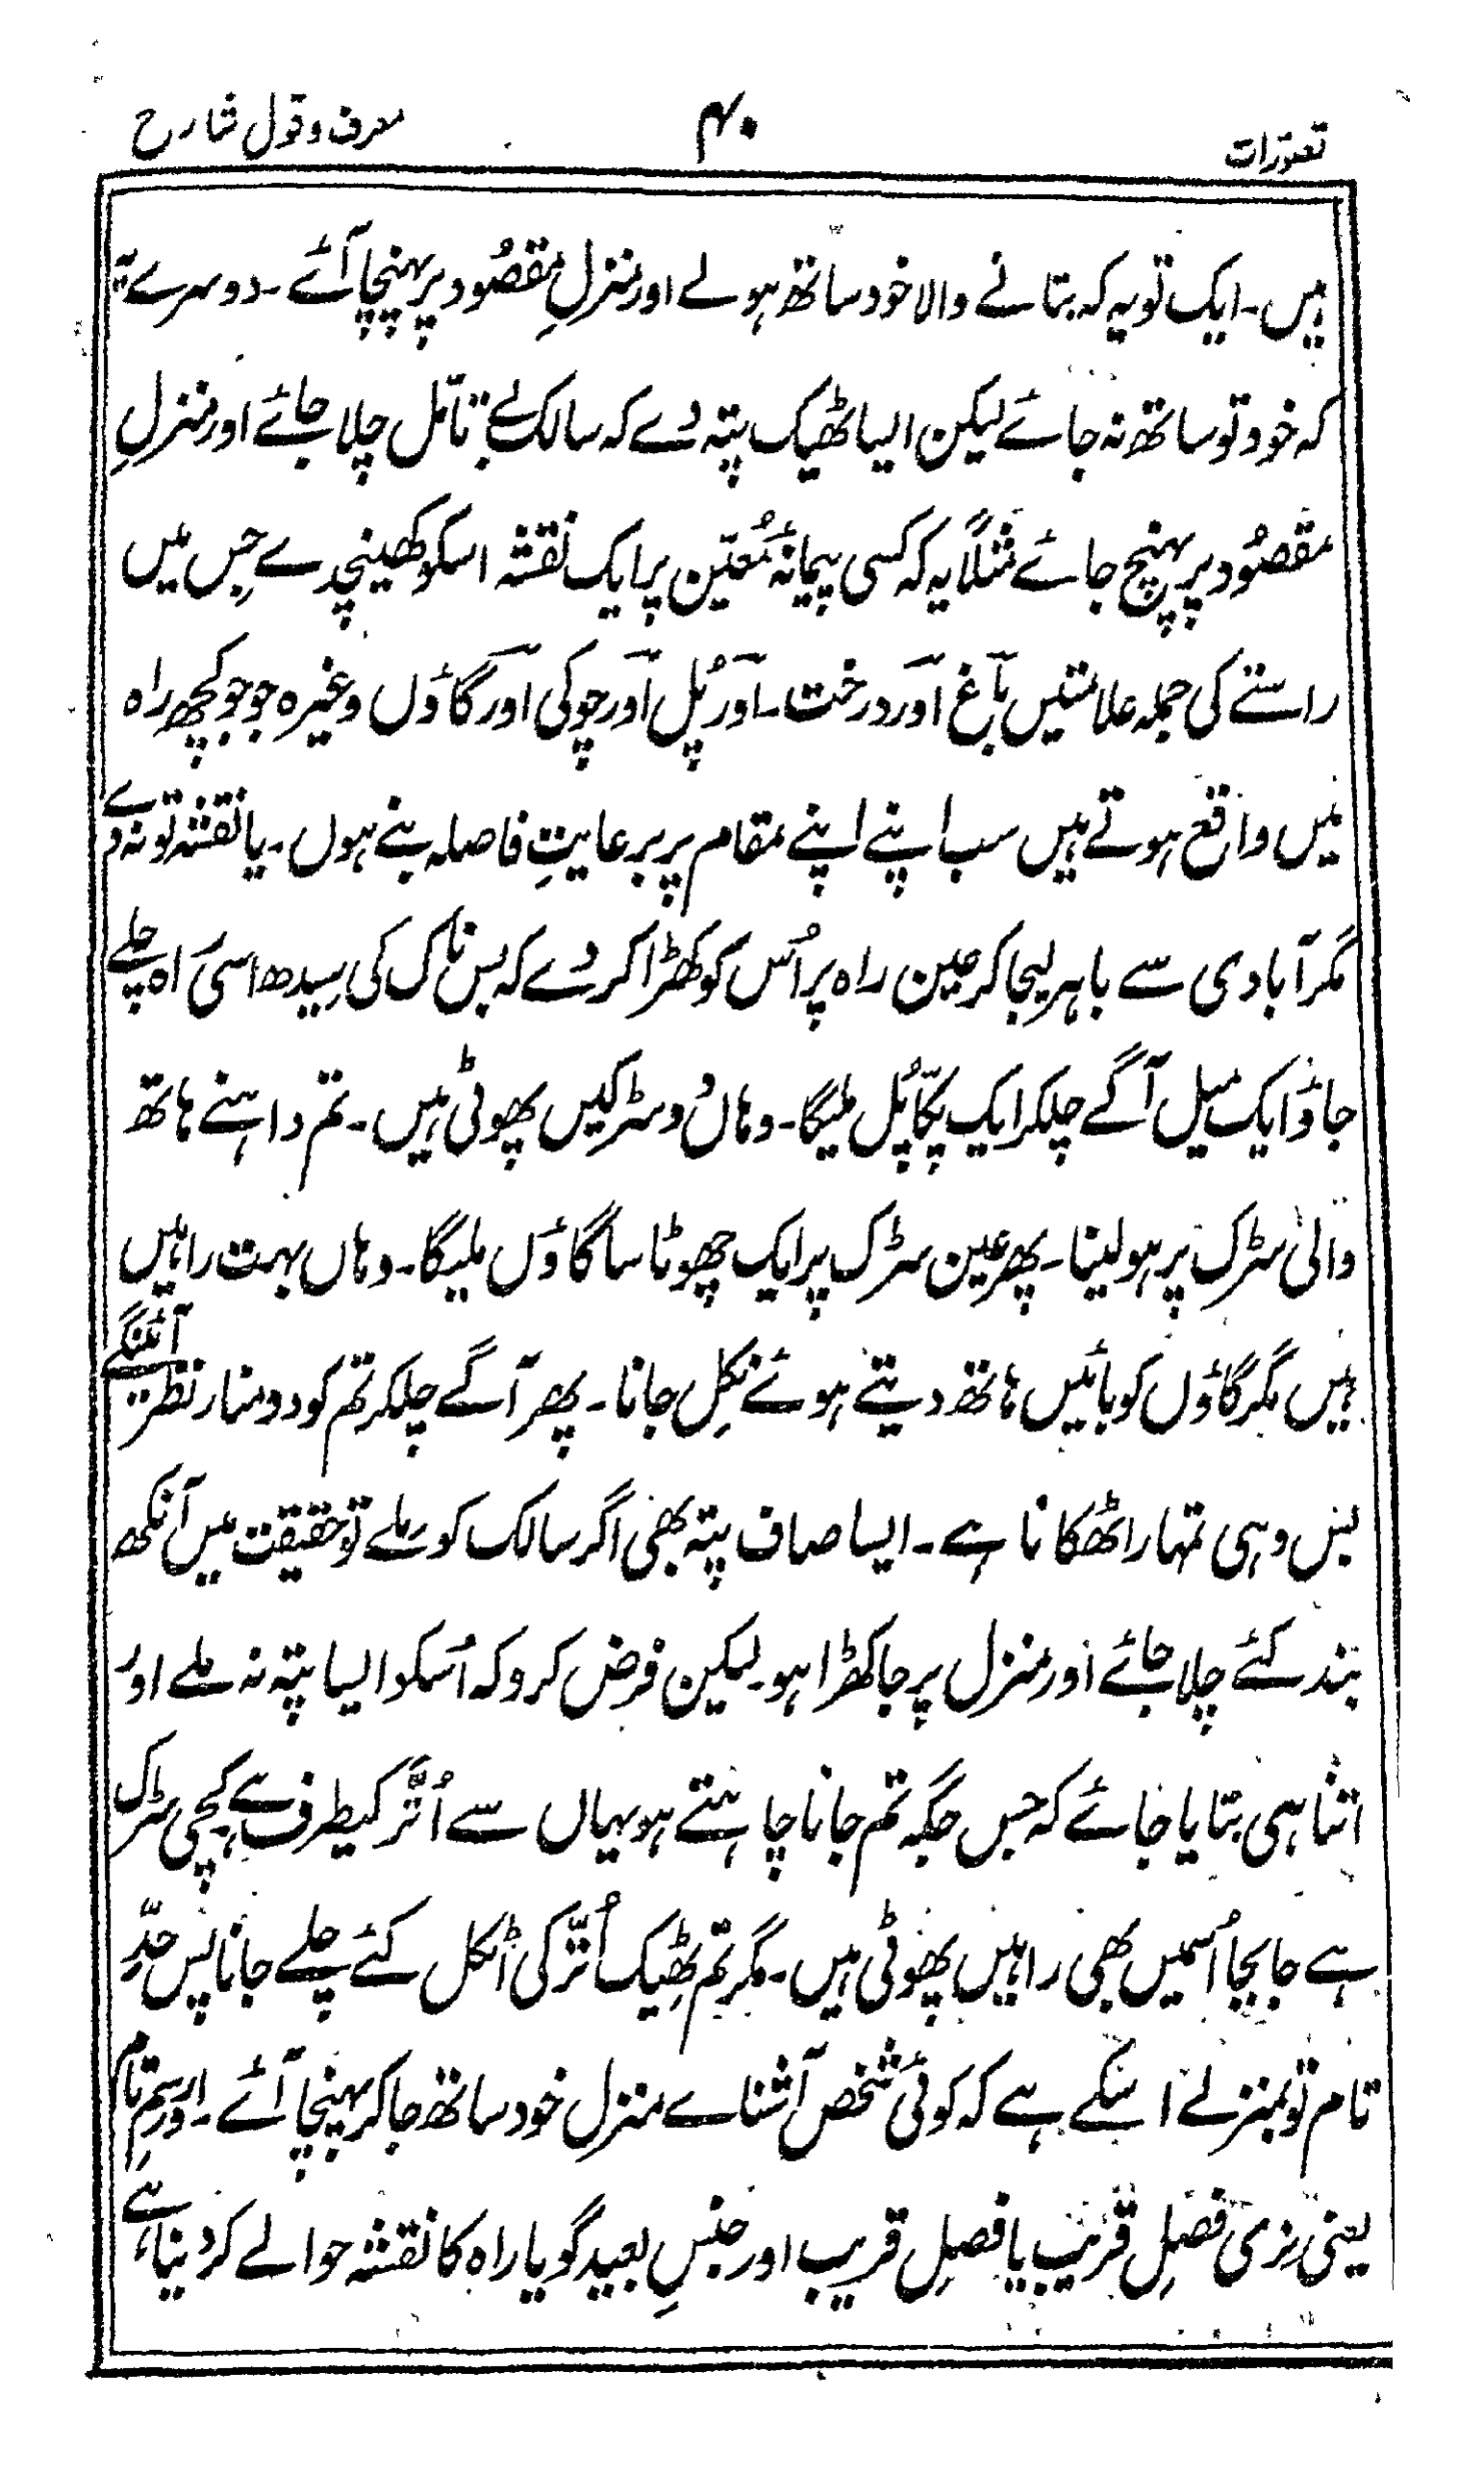 تصورات ۴۰ معرف و قول شارح
ہیں۔ ایک تو یہ کہ بتانے والا خود ساتھ ہولے اور منزلِ مقصُود پر پہنچا آئے۔ دوسرے یہ
کہ خود تو ساتھ نہ جائے لیکن ایسا ٹھیک پتہ دے کہ سالک بے تامّل چلا جائے اور منزلِ
مقصُود پر پہنچ جائے مثلاً یہ کہ کسی پیمانۂ مُعیّن پر ایک نقشہ اسکو کھینچدے جِس میں
راستے کی جملہ علامتیں باغ اور درخت۔ اور پُل اور چوکی اور گاؤں وغیرہ جو جو کچھ راہ
میں واقع ہوتے ہیں سب اپنے اپنے مقام پر برعایتِ فاصلہ بنے ہوں۔ یا نقشہ تو نہ دے
مگر آبادی سے باہر لیجا کر عین راہ پر اُس کو کھڑا کر دے کہ بس ناک کی سِیدھ اسی راہ چلے
جاؤ ایک میل آگے چلکر ایک پکّا پُل ملیگا۔ وہاں دو سڑکیں پھوٹی ہیں۔ تم داہنے ہاتھ
والی سڑک پر ہو لینا۔ پھر عین سڑک پر ایک چھوٹا سا گاؤں ملیگا۔ وہاں بہت راہیں
ہیں مگر گاؤں کو بائیں ہاتھ دیتے ہوئے نکِل جانا۔ پھر آگے چلکر تم کو دو منار نظر آئینگے
بس وہی تمہارا ٹھکانا ہے۔ ایسا صاف پتہ بھی اگر سالک کو ملے تو حقیقت میں آنکھ
بند کئے چلا جائے اور منزل پر جا کھڑا ہو۔ لیکن فرض کرو کہ اُسکو ایسا پتہ نہ ملے اور
اتنا ہی بتایا جائے کہ جس جگہ تم جانا چاہتے ہو یہاں سے اُتّر کیطرف ہے کچی سڑک
ہے جا بجا اُسمیں بھی راہیں پھوٹی ہیں۔ مگر تم ٹھیک اُتّر کی اٹکل کئے چلے جانا پس حدِّ
تام تو بمنزلے اسکے ہے کہ کوئی شخص آشناے منزل خود ساتھ جا کر پہنچا آئے۔ اور رسمِ تام
یعنی نری فصلِ قریب یا فصلِ قریب اور جنسِ بعید گویا راہ کا نقشہ حوالے کر دینا ہے،